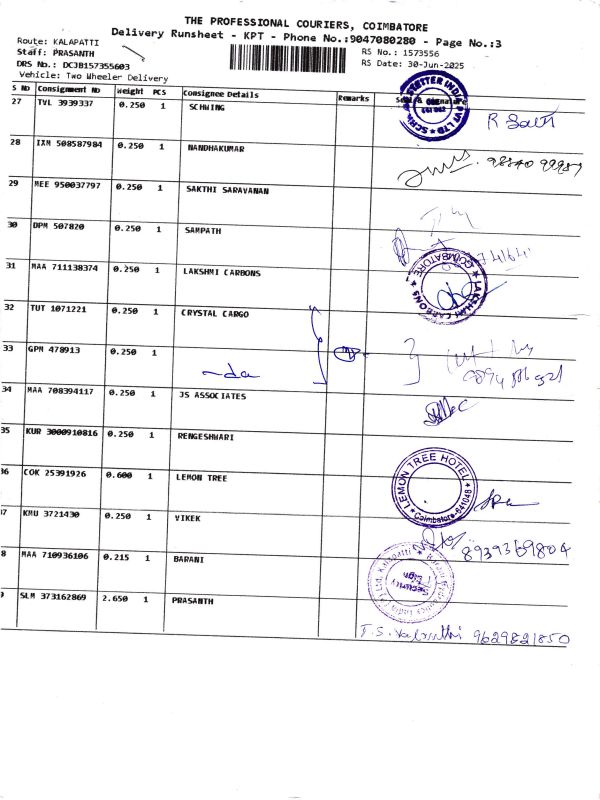 THE PROFESSIONAL COURIERS, COIMBATORE
Delivery Runsheet - KPT - Phone No.:9047080280 - Page No.:3
Route: KALAPATTI
Staff: PRASANTH
DRS No.: DCJB157355603
Vehicle: Two Wheeler Delivery
RS No.: 1573556
RS Date: 30-Jun-2025
S No Consignment No Weight PCS Consignee Details Remarks Seal & Signature
27 TVL 3939337 0.250 1 SCHWING
28 IXM 508587984 0.250 1 NANDHAKUMAR
29 MEE 950037797 0.250 1 SAKTHI SARAVANAN
30 DPM 507820 0.250 1 SAMPATH
31 MAA 711138374 0.250 1 LAKSHMI CARBONS
LAKSHMI CARBONS
COIMBATORE
32 TUT 1071221 0.250 1 CRYSTAL CARGO
33 GPM 478913 0.250 1
~da
34 MAA 708394117 0.250 1 JS ASSOCIATES
35 KUR 3000910816 0.250 1 RENGESHWARI
36 COK 25391926 0.600 1 LEMON TREE
LEMON TREE HOTEL
Coimbatore-641048
37 KMU 3721430 0.250 1 VIKEK
8939369804
8 MAA 710936106 0.215 1 BARANI
Security
SLM 373162869 2.650 1 PRASANTH
9629821850